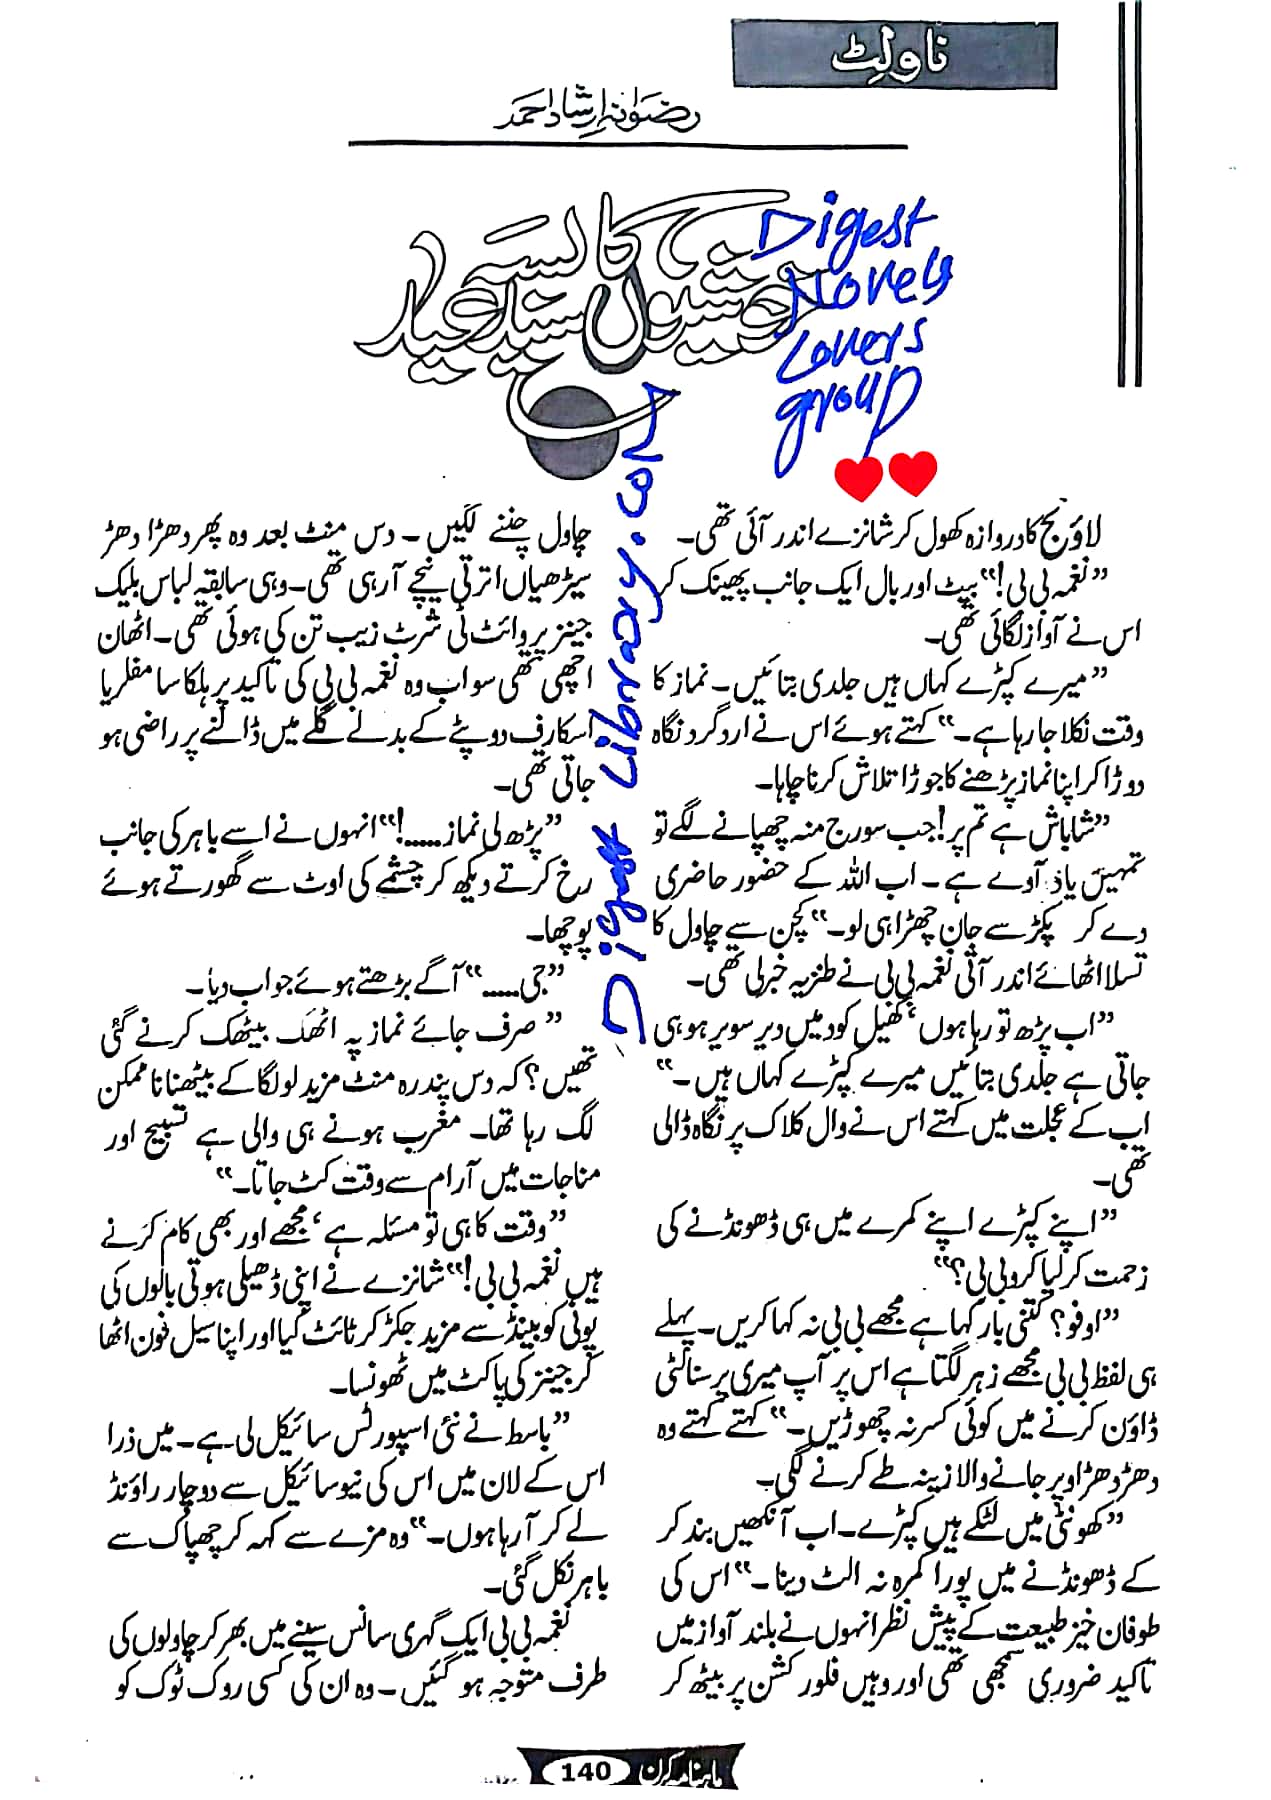 ناولٹ
رضوانہ ارشاد احمد
خوشیوں کا سندیسہ عید
Digest
Novels
Lovers
group
Digest Library.com
لاؤنج کا دروازہ کھول کر شانزے اندر آئی تھی۔
”نغمہ بی بی!“ بیٹ اور بال ایک جانب پھینک کر
اس نے آواز لگائی تھی۔
”میرے کپڑے کہاں ہیں جلدی بتائیں۔ نماز کا
وقت نکلا جا رہا ہے۔“ کہتے ہوئے اس نے اردگرد نگاہ
دوڑا کر اپنا نماز پڑھنے کا جوڑا تلاش کرنا چاہا۔
”شاباش ہے تم پر! جب سورج منہ چھپانے لگے تو
تمہیں یاد آوے ہے۔ اب اللہ کے حضور حاضری
دے کر پکڑ سے جان چھڑا ہی لو۔“ کچن سے چاول کا
تسلا اٹھائے اندر آتی نغمہ بی بی نے طنزیہ خبر لی تھی۔
”اب پڑھ تو رہا ہوں‘ کھیل کود میں دیر سویر ہو ہی
جاتی ہے جلدی بتائیں میرے کپڑے کہاں ہیں۔“
اب کے عجلت میں کہتے اس نے وال کلاک پر نگاہ ڈالی
تھی۔
”اپنے کپڑے اپنے کمرے میں ہی ڈھونڈنے کی
زحمت کر لیا کرو بی بی؟“
”اوفو؟ کتنی بار کہا ہے مجھے بی بی نہ کہا کریں۔ پہلے
ہی لفظ بی بی مجھے زہر لگتا ہے اس پر آپ میری پرسنالٹی
ڈاؤن کرنے میں کوئی کسر نہ چھوڑیں۔“ کہتے کہتے وہ
دھڑ دھڑ اوپر جانے والا زینہ طے کرنے لگی۔
”کھونٹی میں لٹکے ہیں کپڑے۔ اب آنکھیں بند کر
کے ڈھونڈنے میں پورا کمرہ نہ الٹ دینا۔“ اس کی
طوفان خیز طبیعت کے پیش نظر انہوں نے بلند آواز میں
تاکید ضروری سمجھی تھی اور وہیں فلور کشن پر بیٹھ کر
چاول چننے لگیں۔ دس منٹ بعد وہ پھر دھڑا دھڑ
سیڑھیاں اترتی نیچے آرہی تھی۔ وہی سابقہ لباس بلیک
جینز پر وائٹ ٹی شرٹ زیب تن کی ہوئی تھی۔ اٹھان
اچھی تھی سو اب وہ نغمہ بی بی کی تاکید پر ہلکا سا مفلر یا
اسکارف دوپٹے کے بدلے گلے میں ڈالنے پر راضی ہو
جاتی تھی۔
”پڑھ لی نماز.....!“ انہوں نے اسے باہر کی جانب
رخ کرتے دیکھ کر چشمے کی اوٹ سے گھورتے ہوئے
پوچھا۔
”جی.....“ آگے بڑھتے ہوئے جواب دیا۔
”صرف جائے نماز پہ اٹھک بیٹھک کرنے گئی
تھیں؟ کہ دس پندرہ منٹ مزید لو لگا کے بیٹھنا ناممکن
لگ رہا تھا۔ مغرب ہونے ہی والی ہے تسبیح اور
مناجات میں آرام سے وقت کٹ جاتا۔“
”وقت کا ہی تو مسئلہ ہے‘ مجھے اور بھی کام کرنے
ہیں نغمہ بی بی!“ شانزے نے اپنی ڈھیلی ہوتی بالوں کی
پونی کو بینڈ سے مزید جکڑ کر ٹائٹ کیا اور اپنا سیل فون اٹھا
کر جینز کی پاکٹ میں ٹھونسا۔
”باسط نے نئی اسپورٹس سائیکل لی ہے۔ میں ذرا
اس کے لان میں اس کی نیو سائیکل سے دو چار راؤنڈ
لے کر آرہا ہوں۔“ وہ مزے سے کہہ کر چھپاک سے
باہر نکل گئی۔
نغمہ بی بی ایک گہری سانس سینے میں بھر کر چاولوں کی
طرف متوجہ ہو گئیں۔ وہ ان کی کسی روک ٹوک کو
ماہنامہ کرن 140